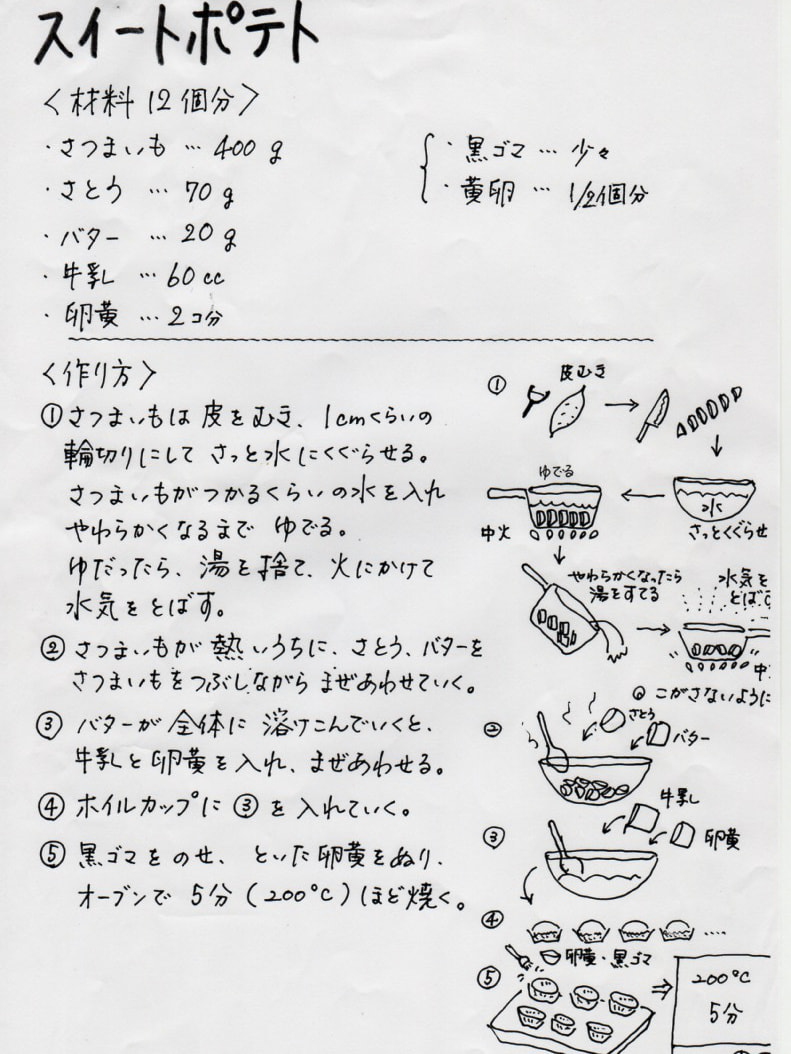 スイートポテト
〈材料 12個分〉
・さつまいも … 400g
・さとう … 70g
・バター … 20g
・牛乳 … 60cc
・卵黄 … 2コ分
・黒ゴマ … 少々
・黄卵 … 1/2個分
〈作り方〉
①さつまいもは皮をむき、1cmくらいの
輪切りにしてさっと水にくぐらせる。
さつまいもがつかるくらいの水を入れ
やわらかくなるまでゆでる。
ゆだったら、湯を捨て、火にかけて
水気をとばす。
②さつまいもが熱いうちに、さとう、バターを
さつまいもをつぶしながらまぜあわせていく。
③バターが全体に溶けこんでいくと、
牛乳と卵黄を入れ、まぜあわせる。
④ホイルカップに③を入れていく。
⑤黒ゴマをのせ、といた卵黄をぬり、
オーブンで5分(200℃)ほど焼く。
①
皮むき
水
さっとくぐらせ
ゆでる
中火
やわらかくなったら
湯をすてる
水気を
とばす
中
こがさないように
②
さとう
バター
③
牛乳
卵黄
④
‥‥
⑤
卵黄・黒ゴマ
200℃
5分